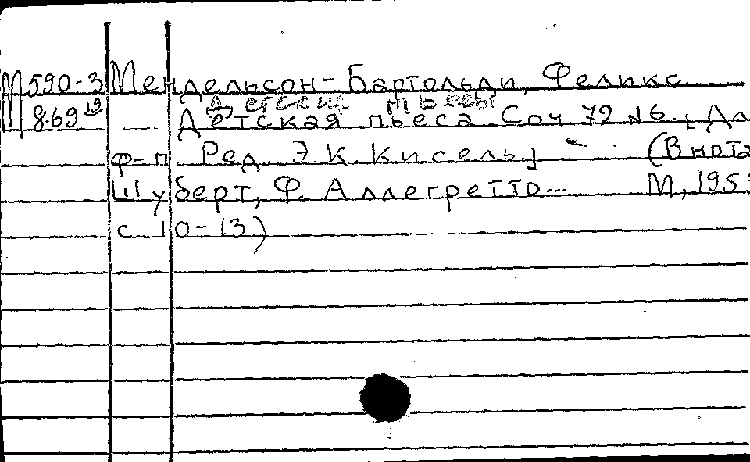 М590-3 Мендельсон-Бартольди, Феликс
Детские пьесы
8.69 Детская пьеса Соч 72 №6. [Дл
ф-п. Ред. Э К Кисель] (В нота
Шуберт, Ф. Аллегретто... М, 195
с 10-13)